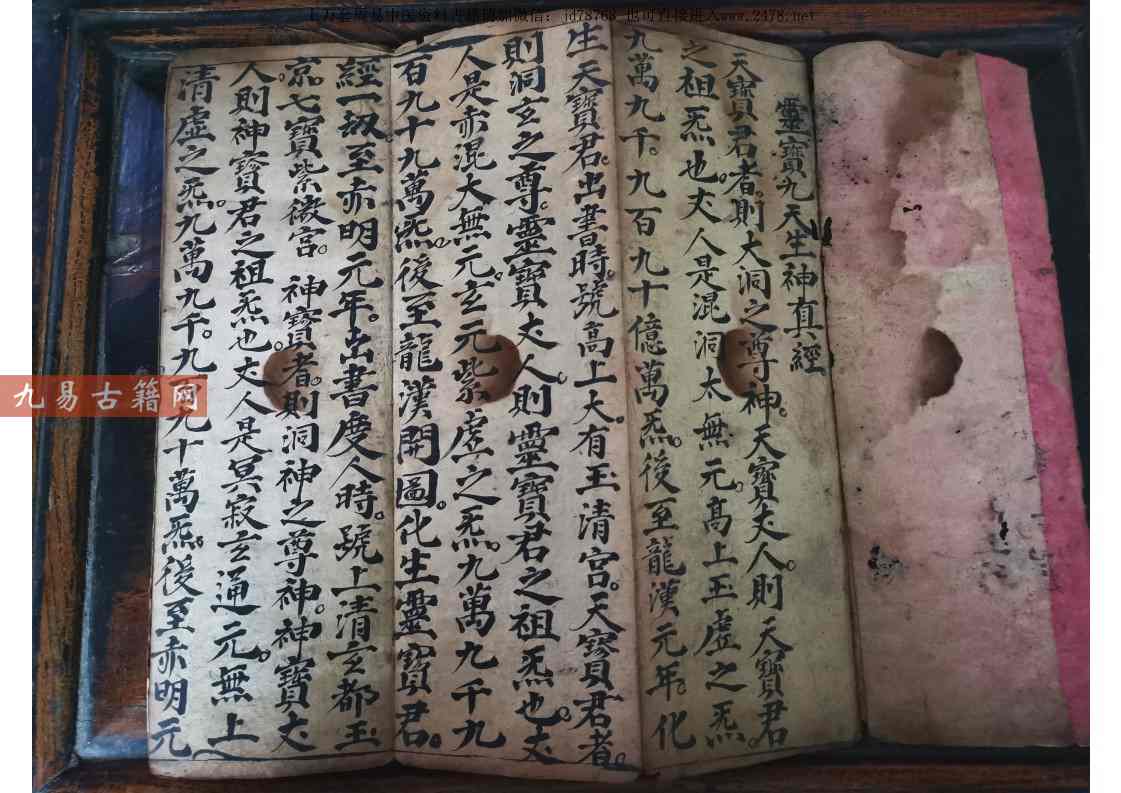 上万套周易中医资料古籍请加微信: jd78768 也可直接进入www.2478.net
靈寶九天生神真經
天寶君者。則大洞之尊神。天寶丈人。則天寶君
之祖炁也。丈人是混洞太無元。高上玉虛之炁。
九萬九千。九百九十億萬炁。後至龍漢元年。化
生天寶君。出書時。號高上大。有玉清宮。天寶君者。
則洞玄之尊。靈寶丈人。則靈寶君之祖炁也。丈
人是赤混大無元。玄元紫虛之炁。九萬九千九
百九十九萬炁。後至龍漢開圖。化生靈寶君。
經一劫。至赤明元年。出書度人時。號上清玄都玉
京。七寶紫微宮。神寶者。則洞神之尊神。神寶丈
人則神寶君之祖炁也丈人是冥寂玄通元。無上
清虛之炁。九萬九千。九百九十萬炁。後至赤明元
九易古籍网